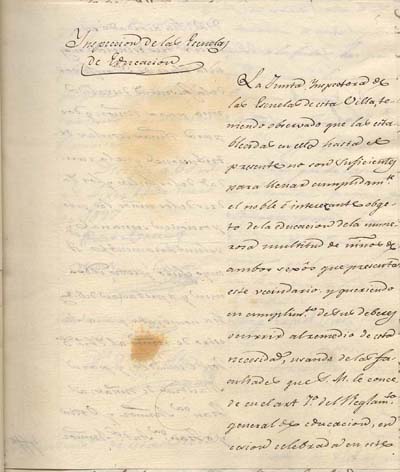 Inspeccion de las Escuelas
de Educacion
La Junta Inspectora de
las Escuelas de esta Villa, te-
niendo observado que las esta-
blecidas en ella hasta el
presente no son suficientes
para llenar cumplidamte.
el noble é interezante obge-
to de la educacion de la nume-
rosa multitud de niños de
ambos sexôs que presenta
este vecindario, y queriendo
en cumplimto. de sus deberes
ocurrir al remedio de esta
necesidad, usando de las fa-
cultades que S. M. le conce-
de en el art. del Reglamto.
general de educacion, en
cesion celebrada en este